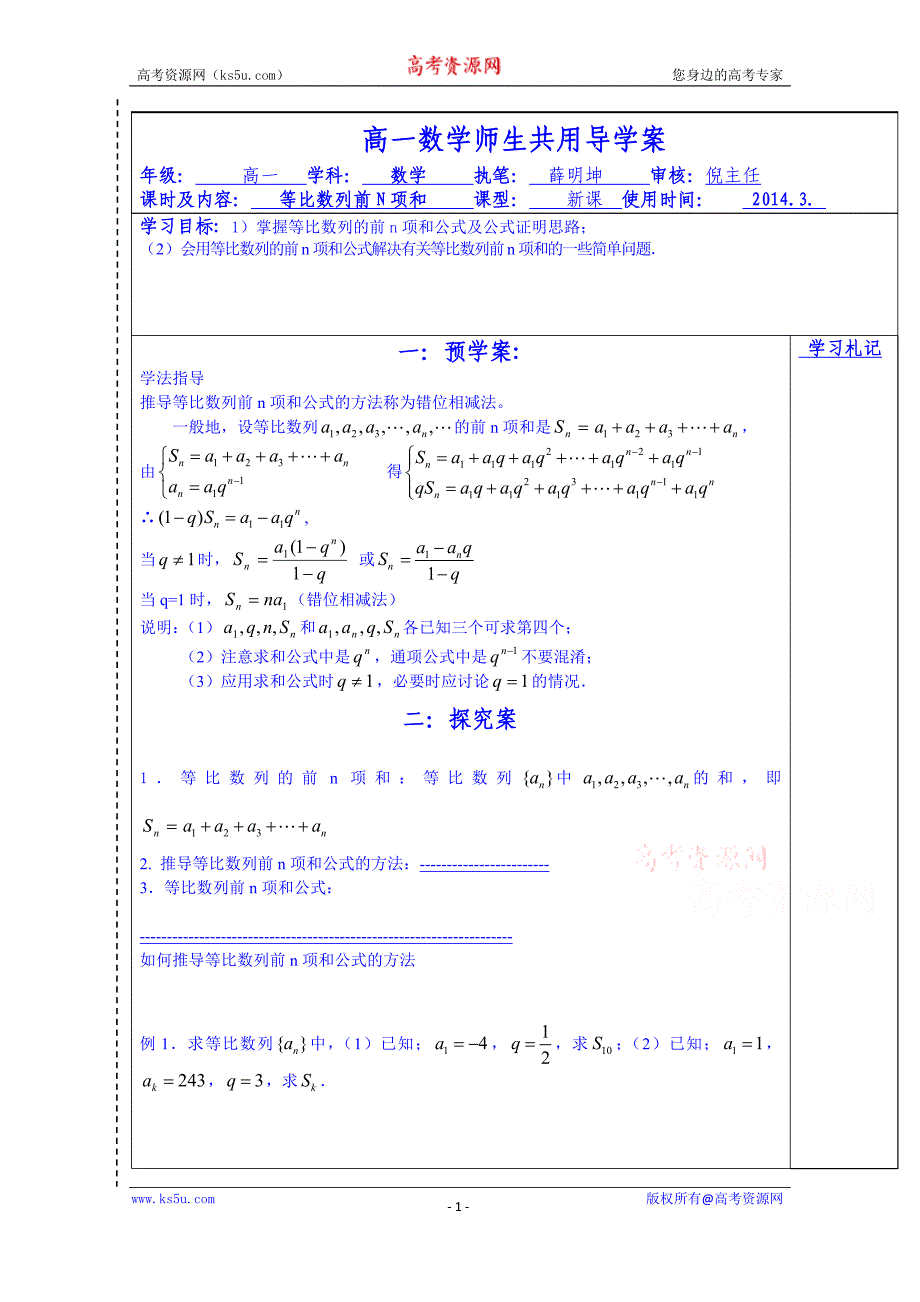 高考资源网（ks5u.com） 高考资源网 您身边的高考专家
高一数学师生共用导学案
年级： 高一 学科： 数学 执笔： 薛明坤 审核：倪主任
课时及内容： 等比数列前N项和 课型： 新课 使用时间： 2014.3.
学习目标：1）掌握等比数列的前n项和公式及公式证明思路；
（2）会用等比数列的前n项和公式解决有关等比数列前n项和的一些简单问题．
一：预学案：
学习札记
学法指导
推导等比数列前n项和公式的方法称为错位相减法。
一般地，设等比数列a₁,a₂,a₃,⋯,aₙ,⋯的前n项和是Sₙ=a₁+a₂+a₃+⋯+aₙ，
由{Sₙ=a₁+a₂+a₃+⋯+aₙ 得{Sₙ=a₁+a₁q+a₁q²+⋯+a₁qⁿ⁻²+a₁qⁿ⁻¹
aₙ=a₁qⁿ⁻¹ qSₙ=a₁q+a₁q²+a₁q³+⋯+a₁qⁿ⁻¹+a₁qⁿ
∴(1−q)Sₙ=a₁−a₁qⁿ,
当q≠1时，Sₙ=a₁(1−qⁿ)/(1−q) 或Sₙ=(a₁−aₙq)/(1−q)
当q=1时，Sₙ=na₁（错位相减法）
说明：（1）a₁,q,n,Sₙ和a₁,aₙ,q,Sₙ各已知三个可求第四个；
（2）注意求和公式中是qⁿ，通项公式中是qⁿ⁻¹不要混淆；
（3）应用求和公式时q≠1，必要时应讨论q=1的情况．
二：探究案
1．等比数列的前n项和：等比数列{aₙ}中a₁,a₂,a₃,⋯,aₙ的和，即
Sₙ=a₁+a₂+a₃+⋯+aₙ
2. 推导等比数列前n项和公式的方法：------------------------
高考资源网
3．等比数列前n项和公式：
高考资源网
---------------------------------------------------------------------
如何推导等比数列前n项和公式的方法
例1．求等比数列{aₙ}中，（1）已知；a₁=−4，q=1/2，求S₁₀；（2）已知；a₁=1，
aₖ=243，q=3，求Sₖ．
www.ks5u.com 版权所有@高考资源网
- 1 -